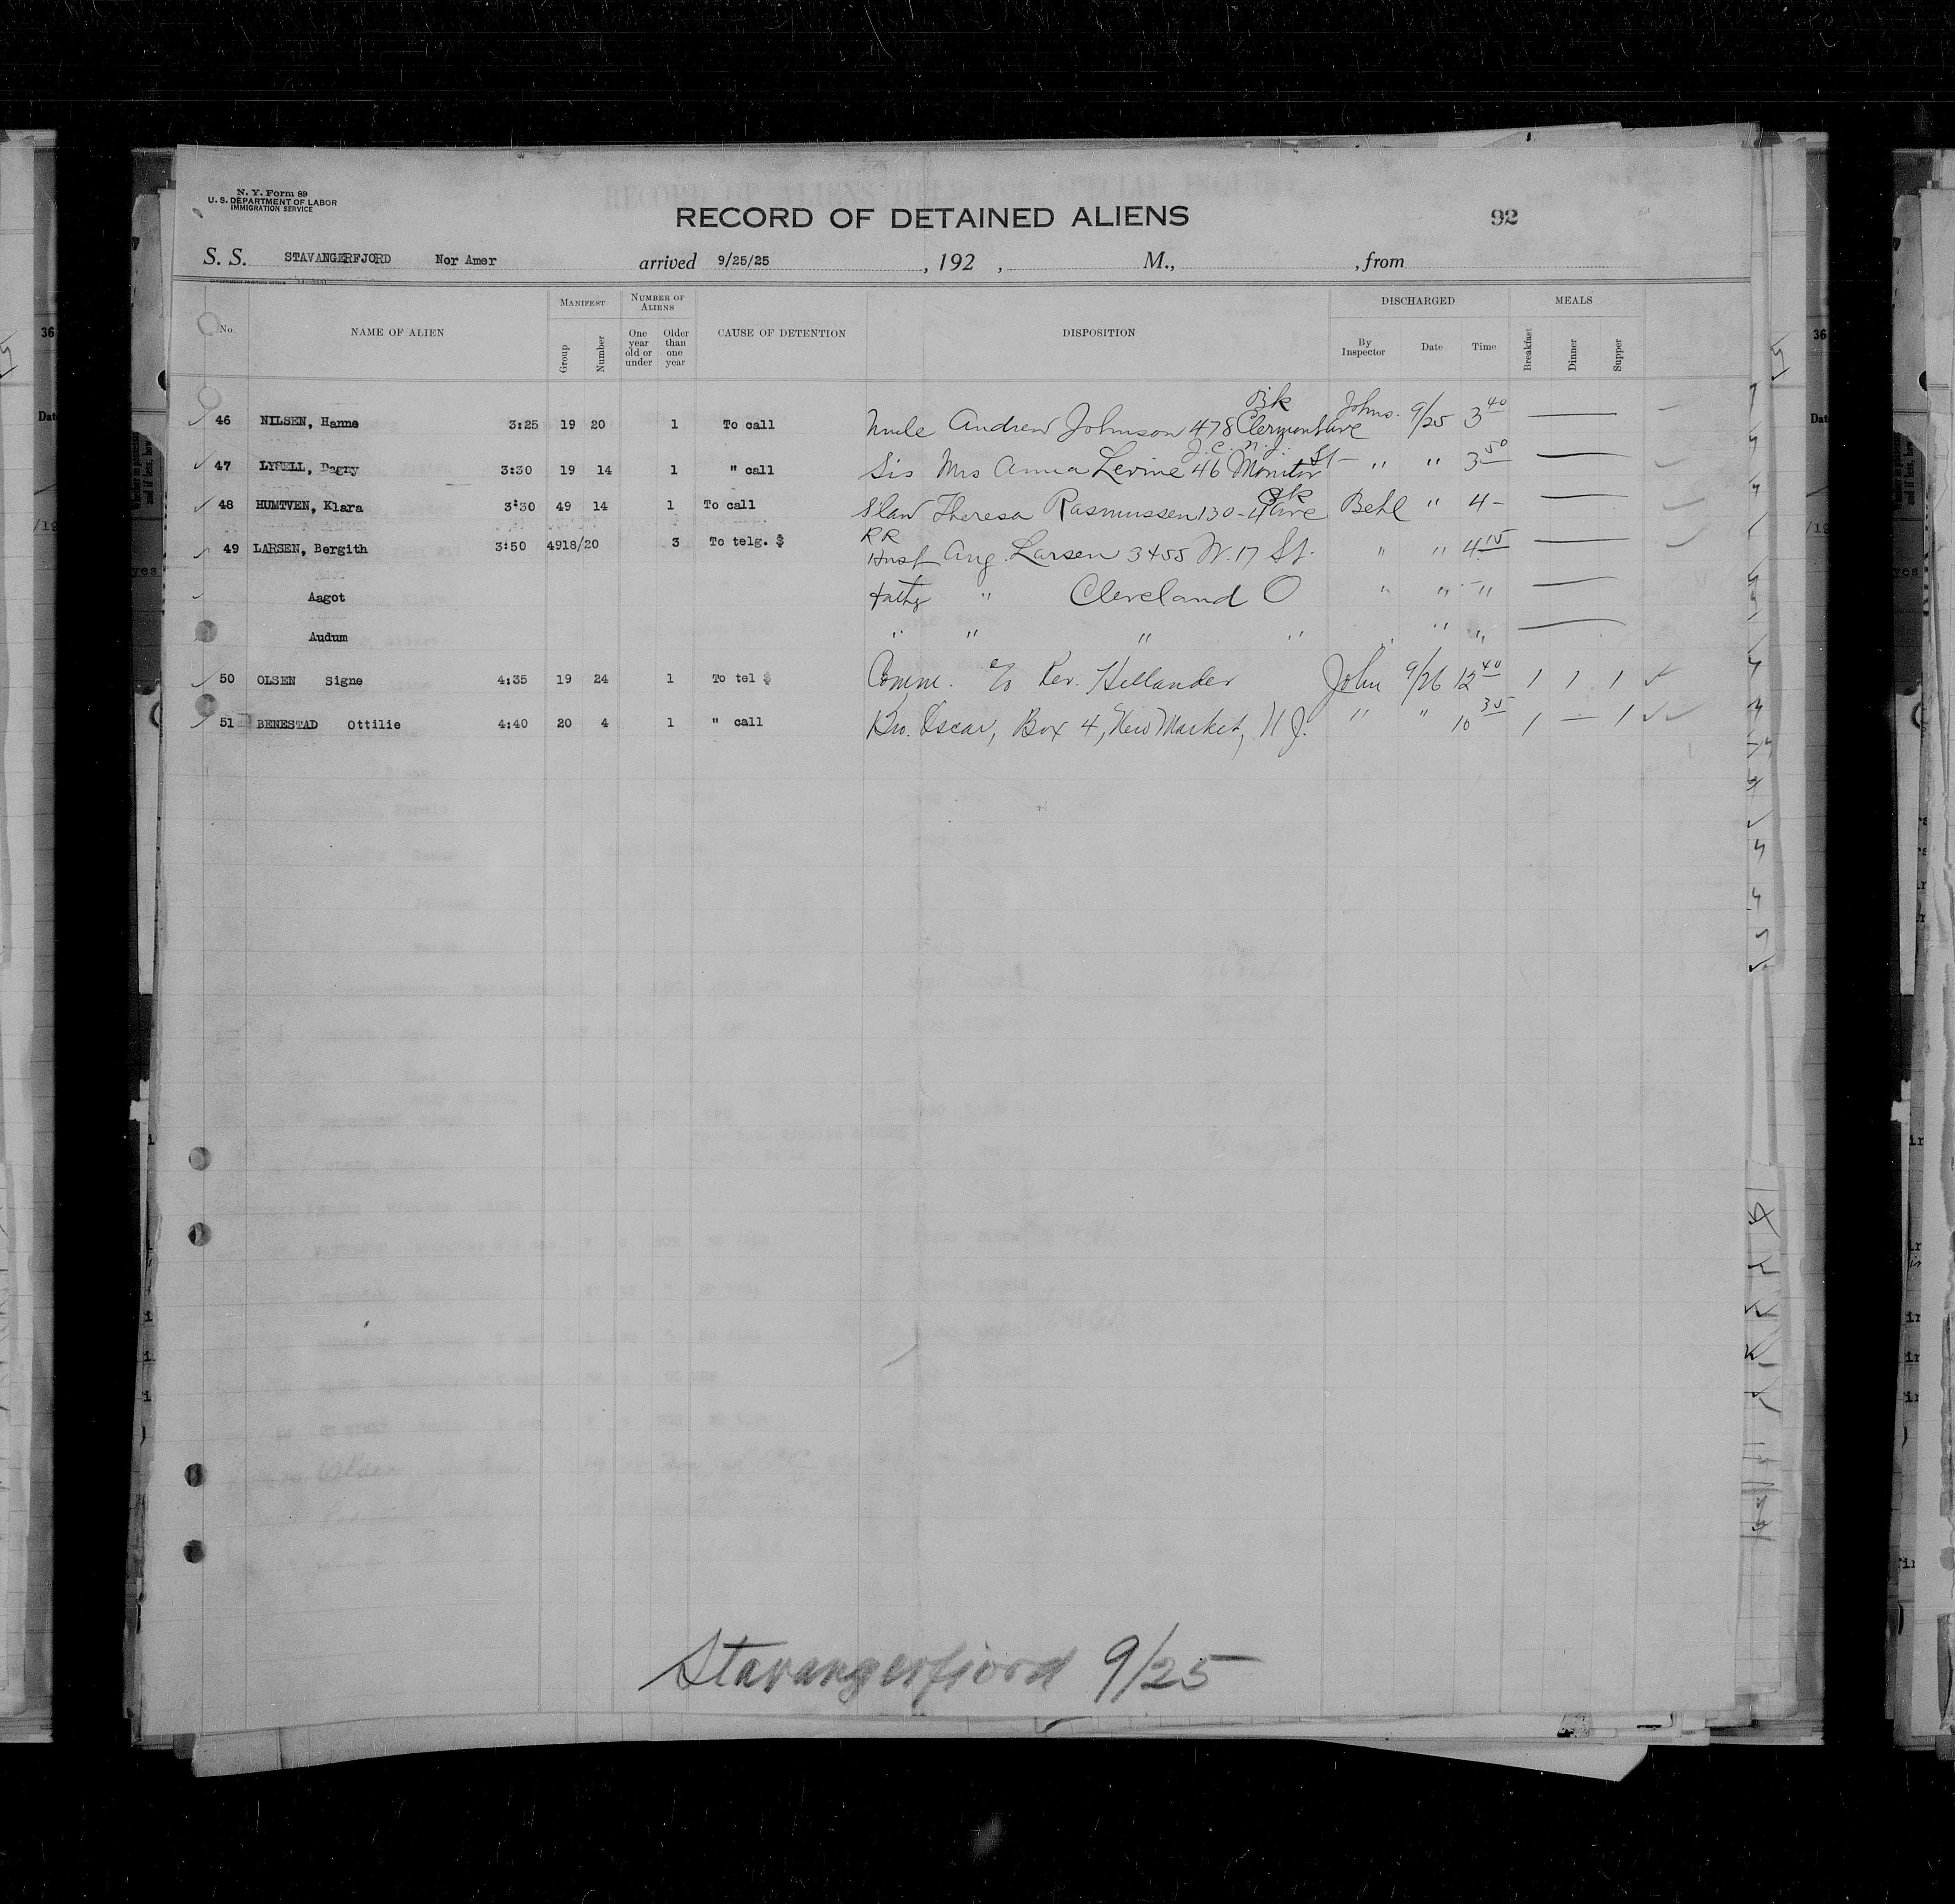 N. Y. Form 89
U. S. DEPARTMENT OF LABOR
IMMIGRATION SERVICE
RECORD OF DETAINED ALIENS
92
S. S. STAVANGERFJORD Nor Amer arrived 9/25/25 , 192 , M., , from
No. NAME OF ALIEN MANIFEST Group Number NUMBER OF ALIENS One year old or under Older than one year CAUSE OF DETENTION DISPOSITION DISCHARGED By Inspector Date Time MEALS Breakfast Dinner Supper
46 NILSEN, Hanne 3:25 19 20 1 To call Uncle Andrew Johnson 478 Clermont ave Bk Johns. 9/25 3 40
47 LYSELL, Dagny 3:30 19 14 1 " call Sis Mrs Anna Levine 46 Monitor St J.C. N.J. " " 3 50
48 HUMTVEN, Klara 3:30 49 14 1 To call Slaw Theresa Rasmussen 130-4 ave Bk Behl " 4 -
49 LARSEN, Bergith 3:50 4918/20 3 To telg. $ RR Husf Aug. Larsen 3455 W. 17 St. " " 4 15
Aagot fathr " Cleveland O " " "
Audum " " " " " " "
50 OLSEN Signe 4:35 19 24 1 To tel $ Comm. c/o Rev. Hellander John 9/26 12 40 1 1 1
51 BENESTAD Ottilie 4:40 20 4 1 " call Bro. Oscar, Box 4, New Market, N J. " " 10 35 1 — 1
Stavangerfjord 9/25